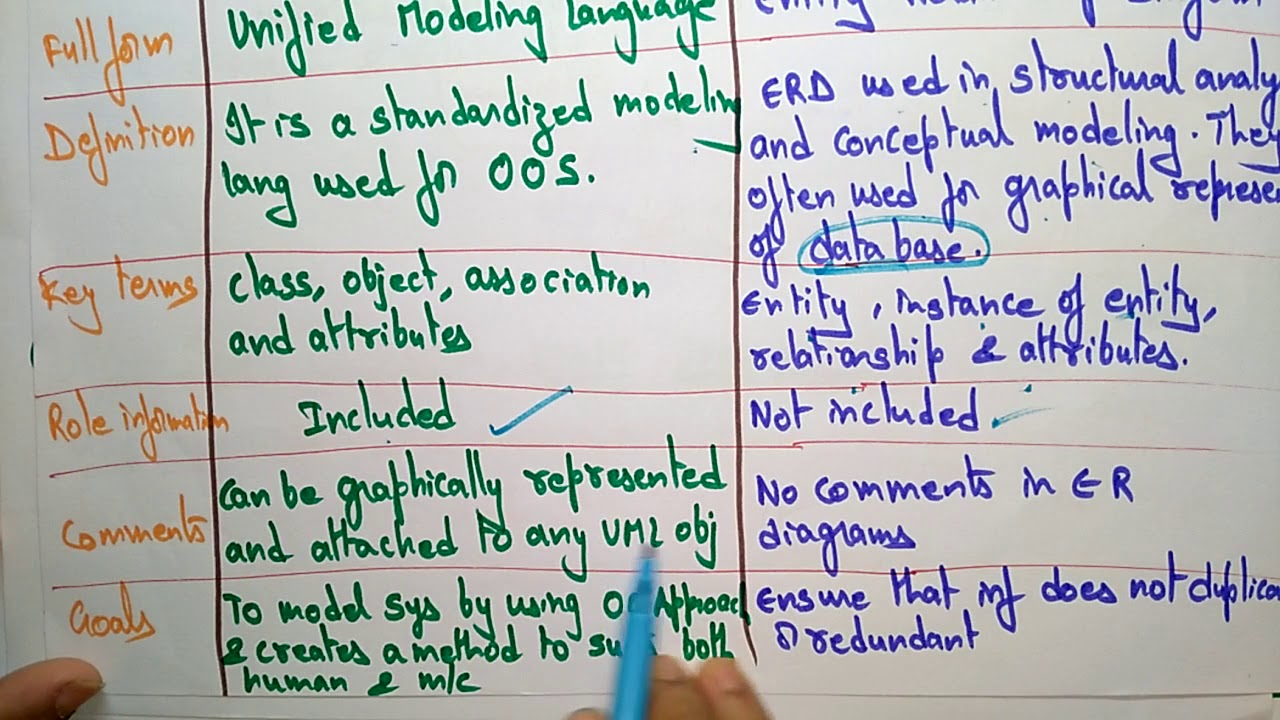 Full form
Unified Modeling Language
Definition
It is a standardized modeling
lang used for OOS.
ERD used in structural analy
and conceptual modeling. They
often used for graphical represe
of database.
Key terms
class, object, association
and attributes
Entity, instance of entity,
relationship & attributes.
Role information
Included
Not included
Comments
Can be graphically represented
and attached to any UML obj
No comments in ER
diagrams
Goals
To model sys by using OO Approach
& creates a method to both
human & m/c
Ensure that inf does not duplica
or redundant